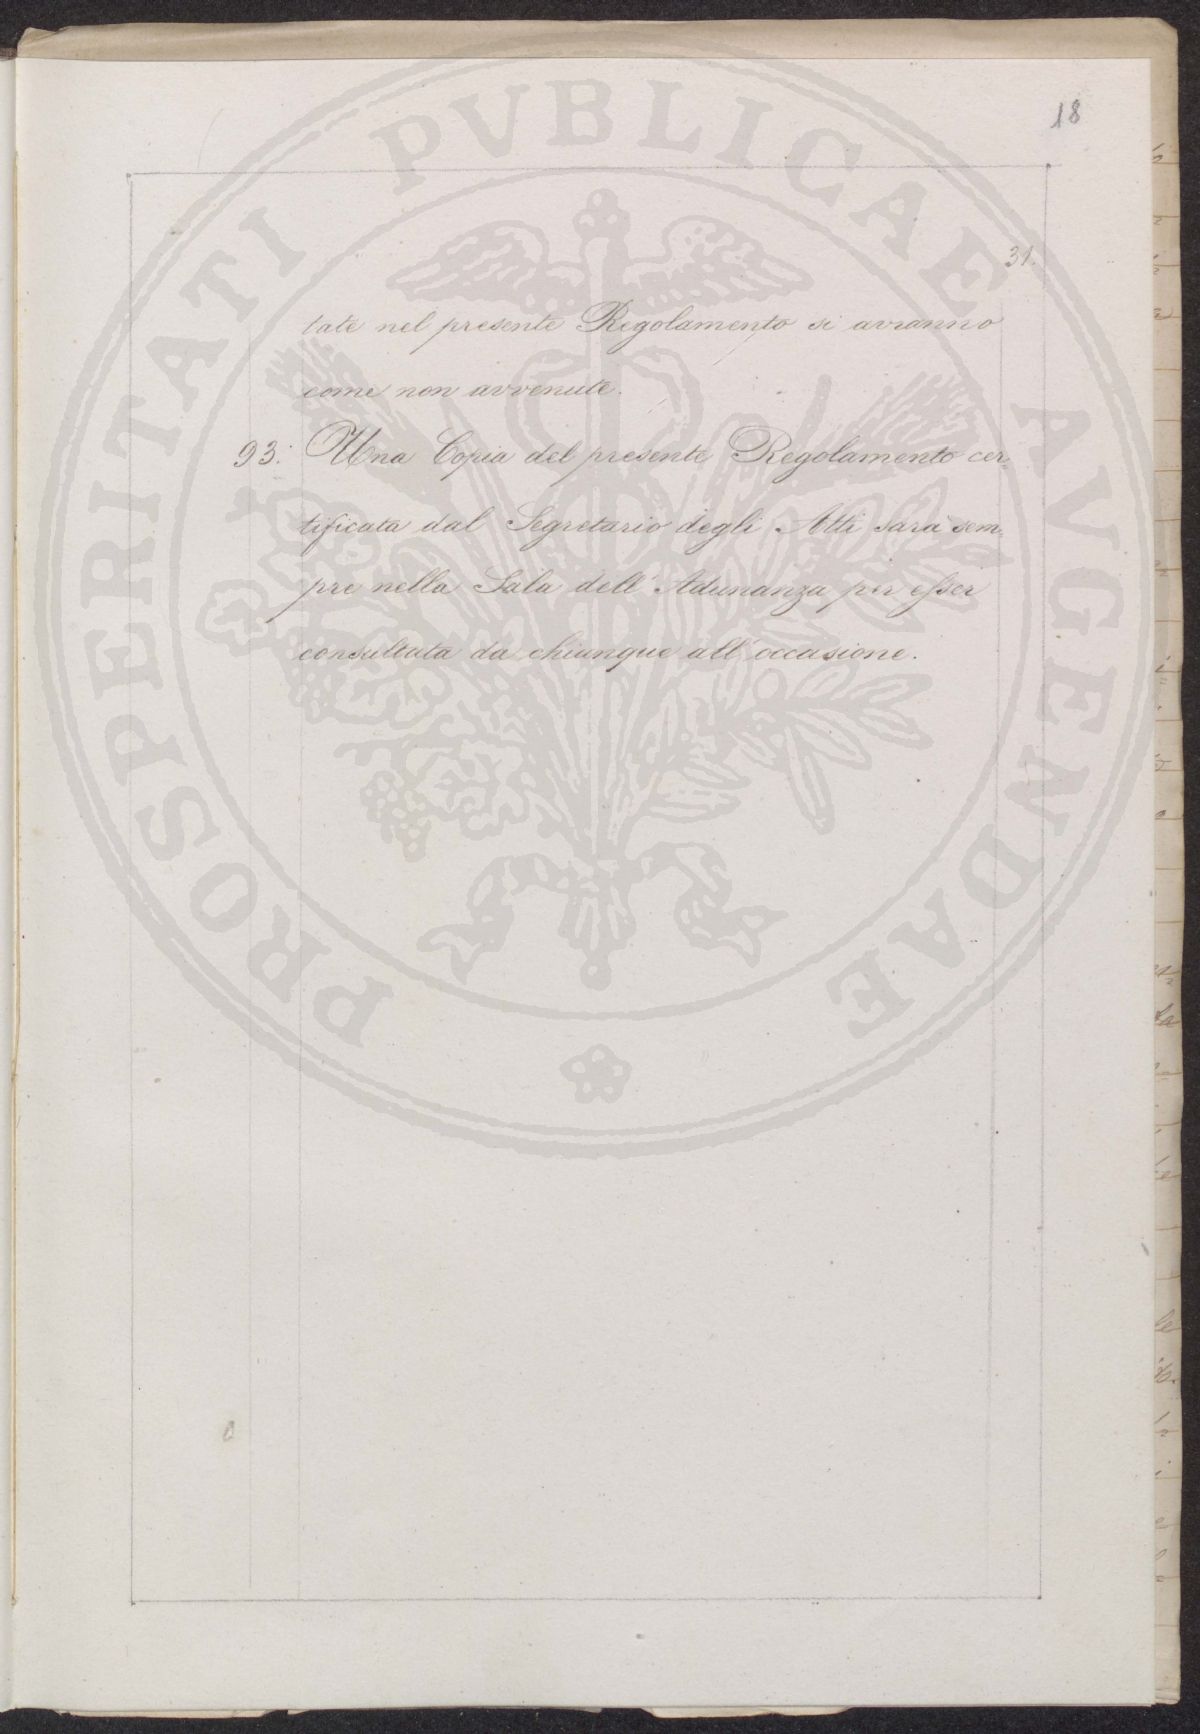 18
31.
tate nel presente Regolamento si avranno
come non avvenute.
93. Una Copia del presente Regolamento cer=
tificata dal Segretario degli Atti sarà sem=
pre nella Sala dell'Adunanza per esser
consultata da chiunque all'occasione.
PROSPERITATI PVBLICAE AVGENDAE